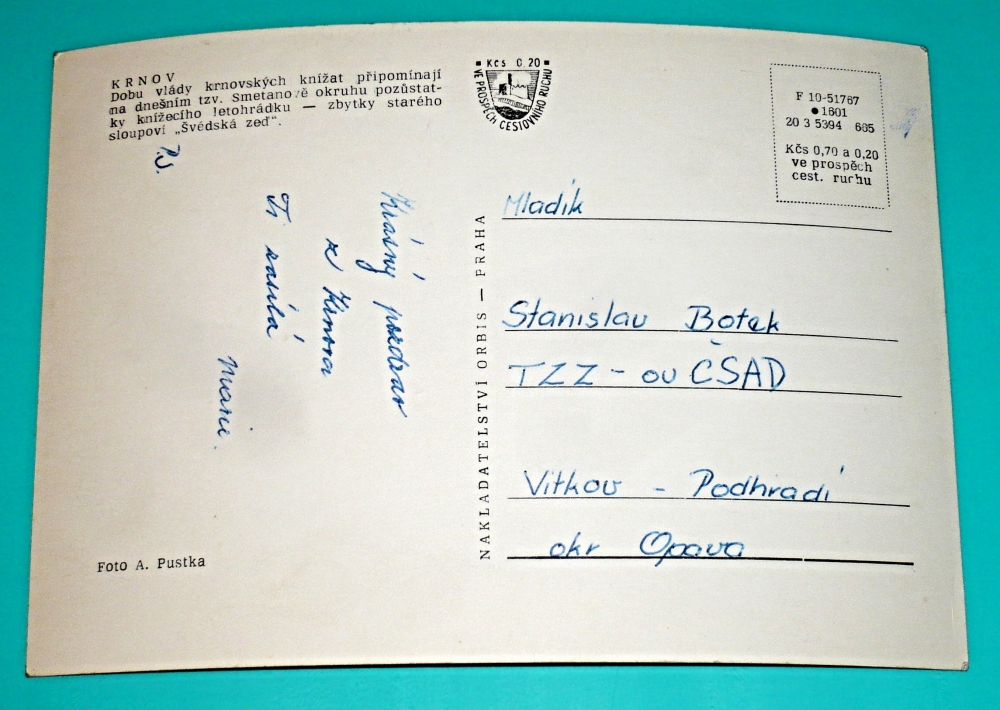 KRNOV
Dobu vlády krnovských knížat připomínají
na dnešním tzv. Smetanově okruhu pozůstat-
ky knížecího letohrádku — zbytky starého
sloupoví „Švédská zeď“.
P.S.
Krásný pozdrav
ze Krnova
Ti zasílá
Marie.
Foto A. Pustka
Kčs 0.20
VE PROSPĚCH CESTOVNÍHO RUCHU
NAKLADATELSTVÍ ORBIS — PRAHA
F 10-51767
● 1601
20 3 5394 605
Kčs 0,70 a 0,20
ve prospěch
cest. ruchu
Mladík
Stanislav Botek
TZZ - ou ČSAD
Vitkov - Podhradí
okr Opava